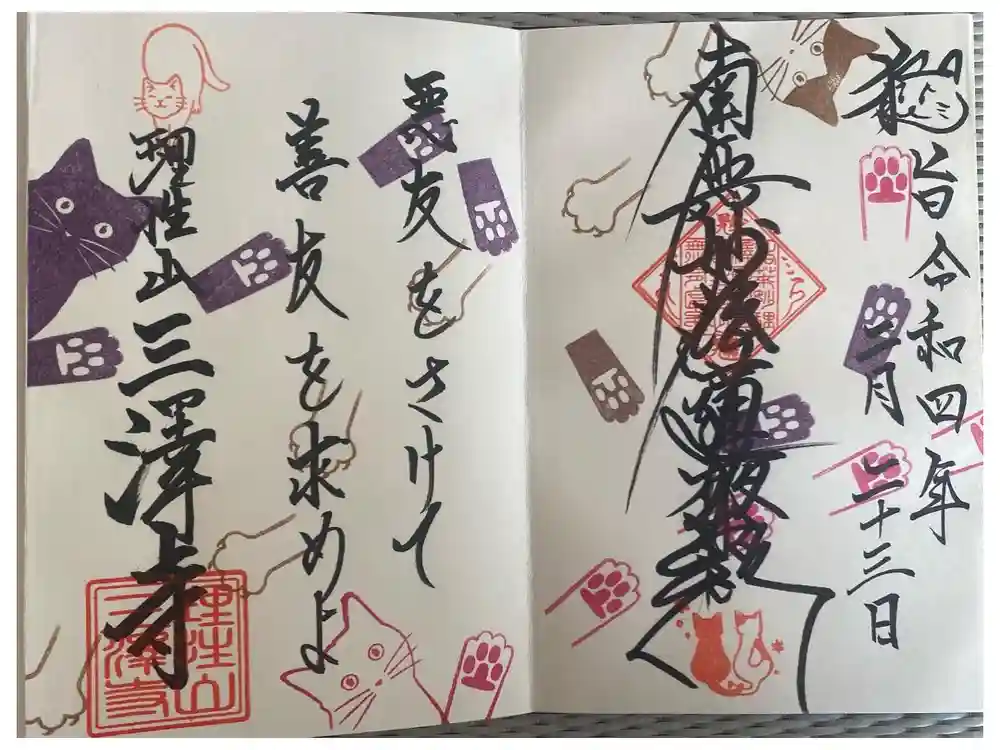 猫旨令和四年
二月二十三日
南無妙法蓮華経
悪友をさけて
善友を求めよ
理性山三澤寺
理性山
三澤寺